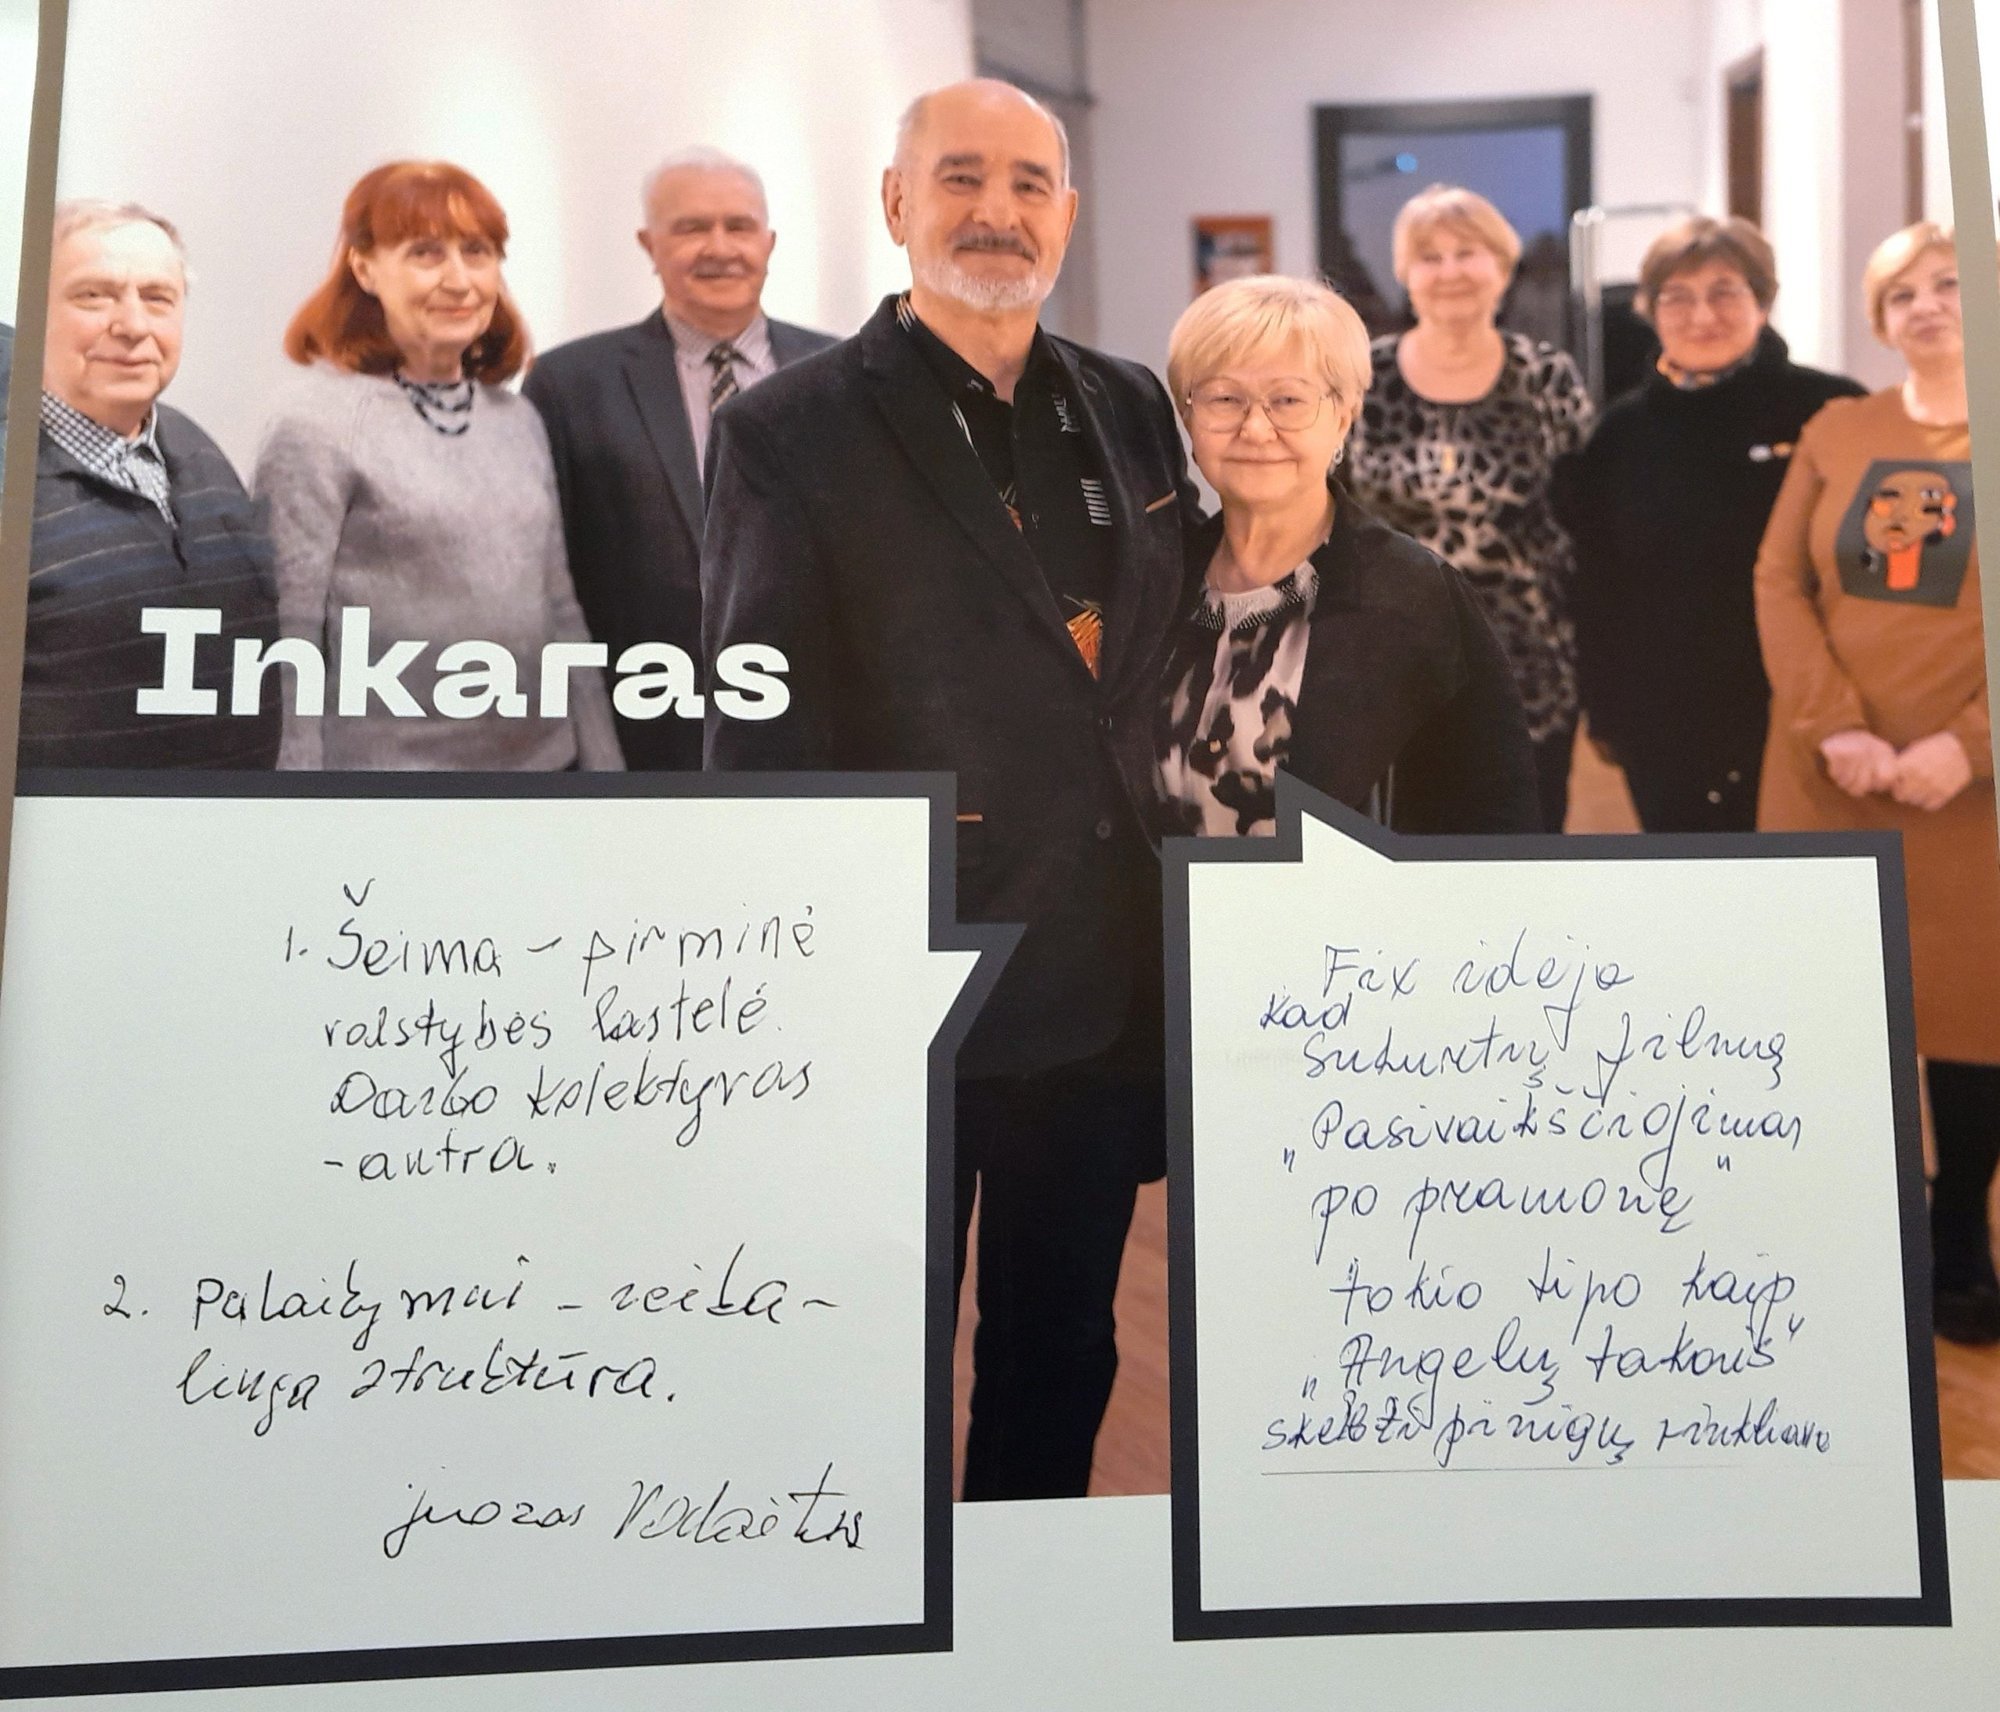 Inkaras
1. Šeima - pirminė
valstybės ląstelė.
Darbo kolektyvas
- antra.
2. Palaikymai - reika-
linga struktūra.
juozas
Fix idėja
kad
sukurtų filmą
„Pasivaikščiojimas
po pramonę"
tokio tipo kaip
„Angelų takais"
skelbti pinigų rinkliavą